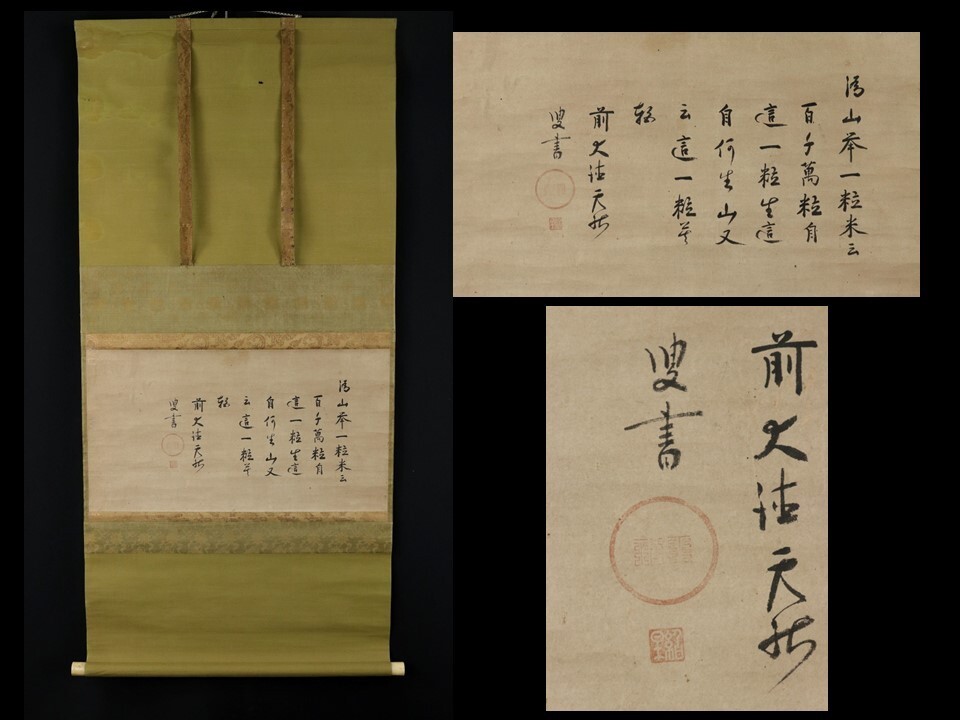 潙山挙一粒米云
百千萬粒自
這一粒生這
自何生山又
云這一粒莫
輕
前大德天祐
叟書
潙山挙一粒米云
百千萬粒自
這一粒生這
自何生山又
云這一粒莫
輕
前大德天祐
叟書
前大德天祐
叟書